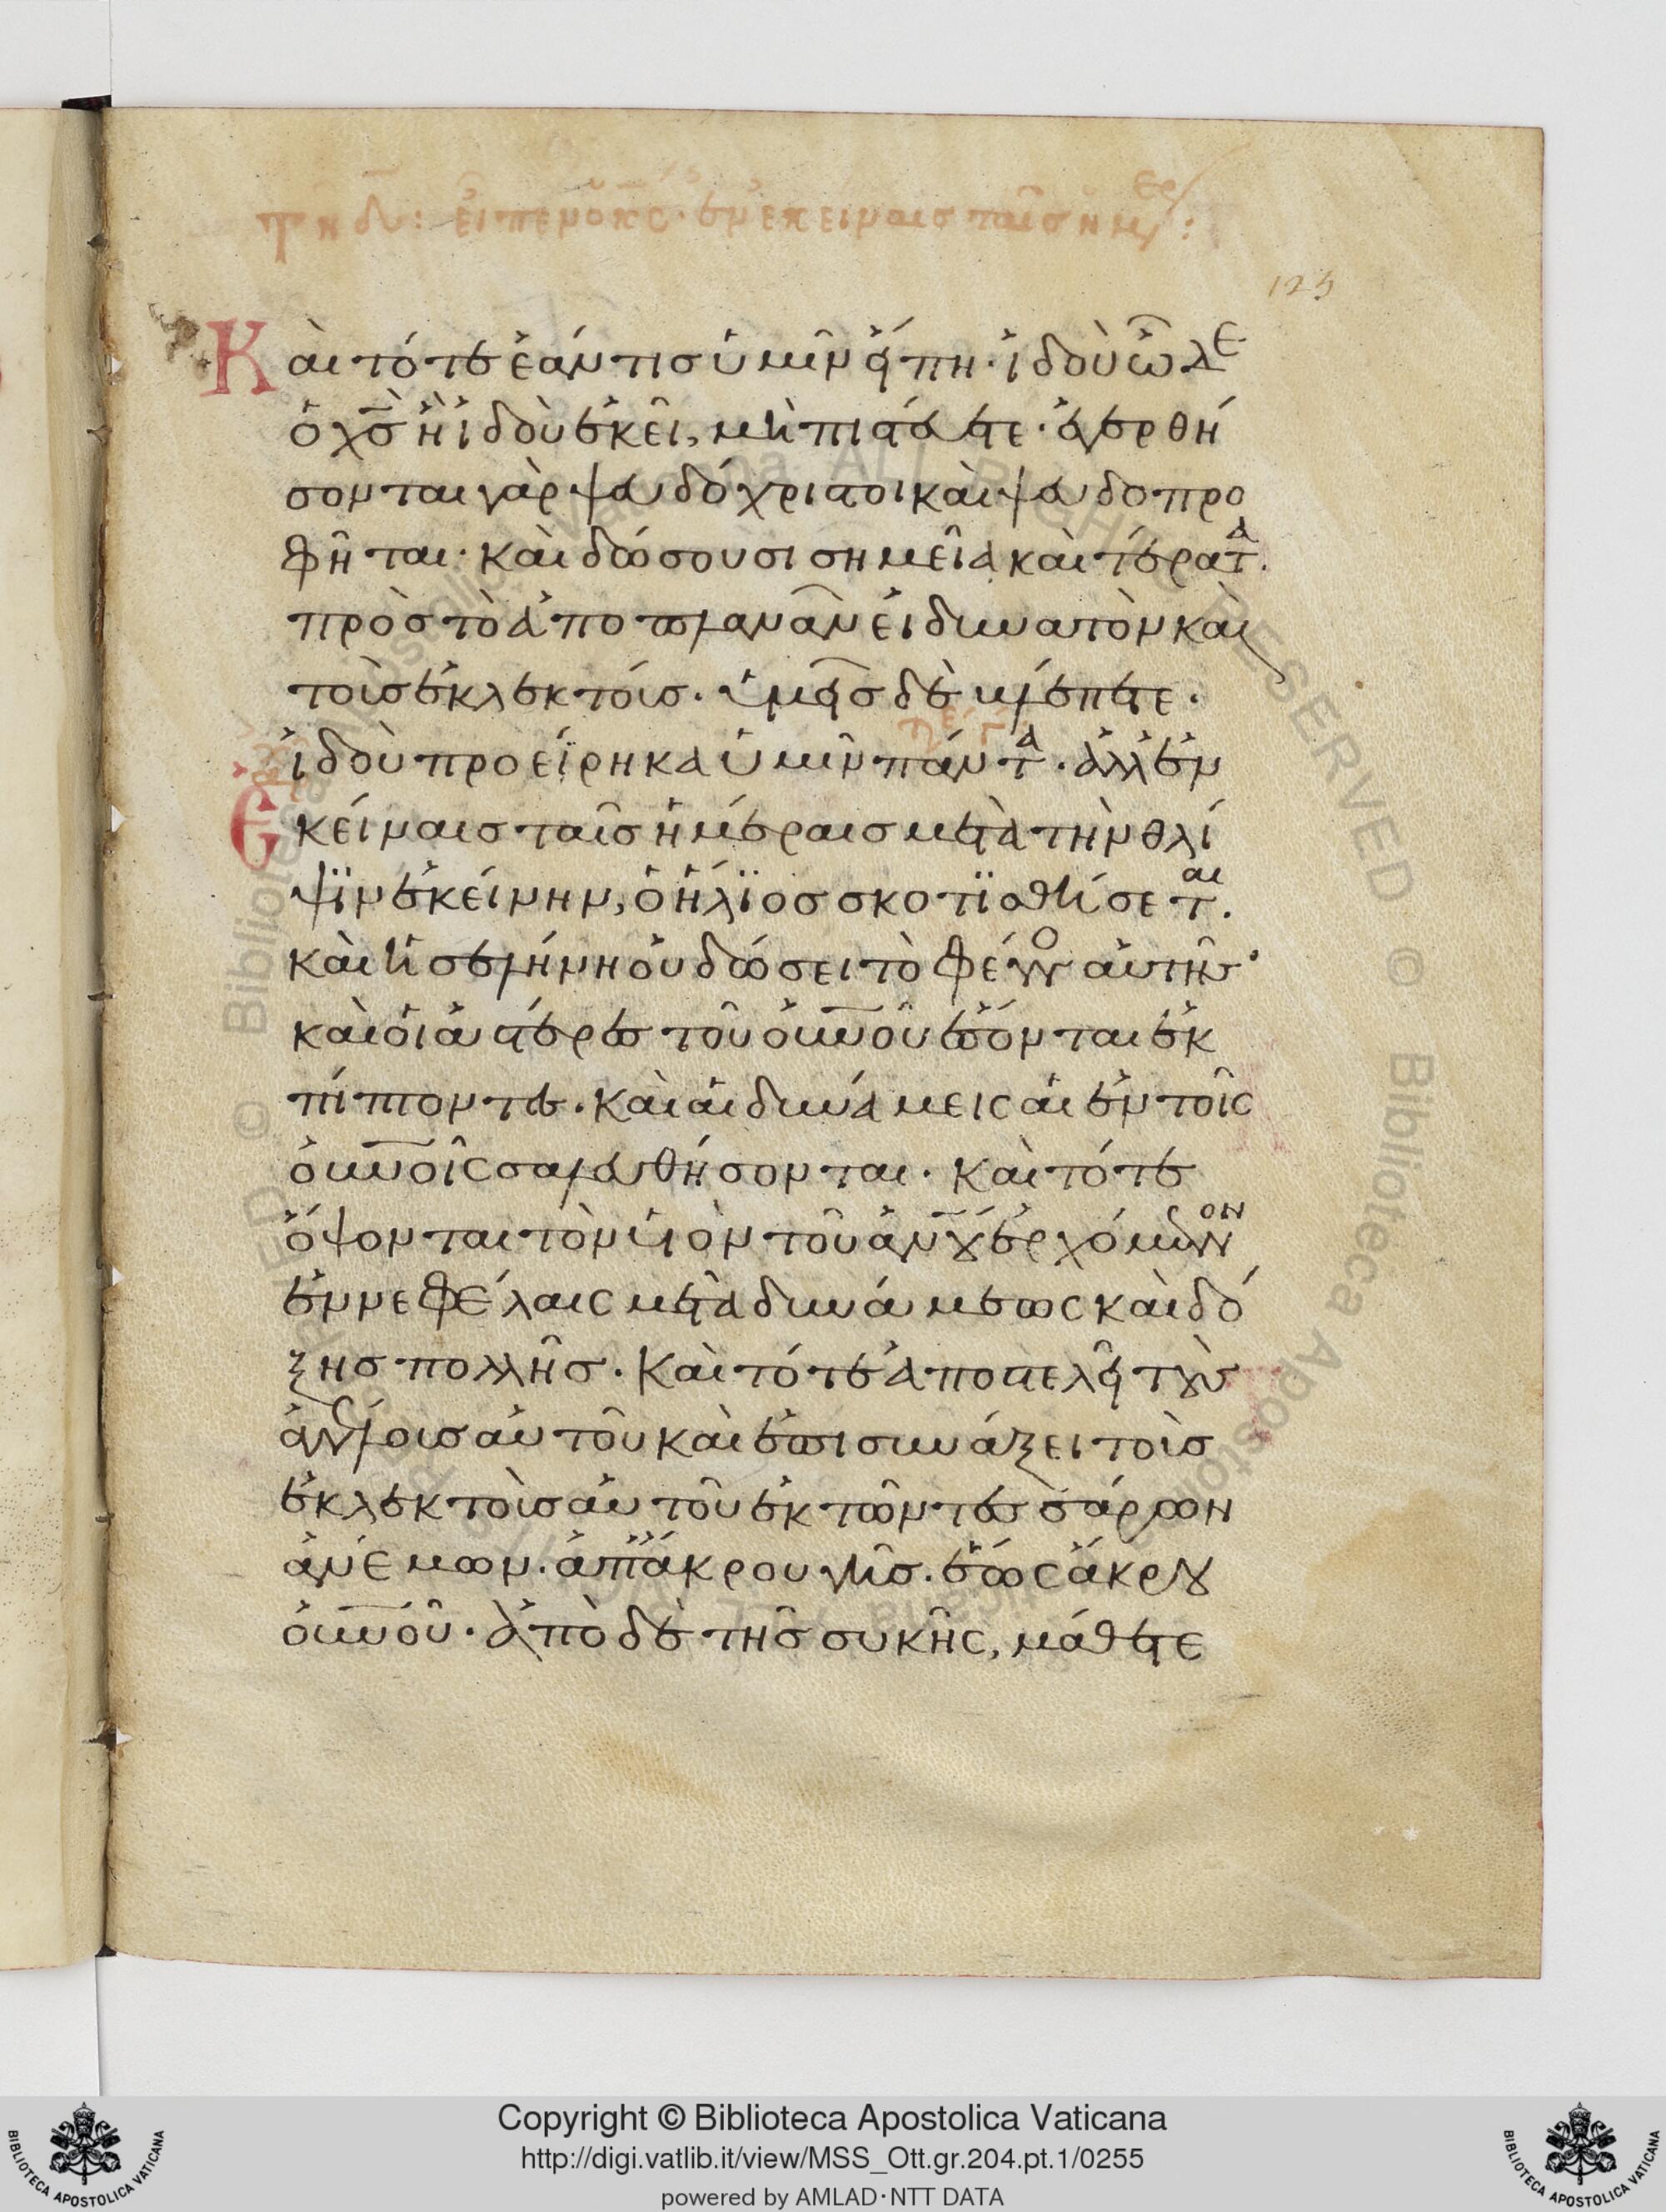 τῆ δ̅: εἶπεν ὁ κς̅· ἐν ἐκείναις ταῖς ἡμερ:
123
Καὶ τότε ἐάν τις ὑμῖν εἴπη· ἰδοὺ ὧδε
ὁ χς̅ ἢ ἰδοὺ ἐκεῖ, μὴ πιστεύετε· ἐγερθή
σονται γὰρ ψευδόχριστοι καὶ ψευδοπρο
φῆται· καὶ δώσουσι σημεῖα καὶ τέρατα.
πρὸς τὸ ἀποπλανᾶν εἰ δυνατὸν καὶ
τοὺς ἐκλεκτούς. ὑμεῖς δὲ βλέπετε.
ἰδοὺ προείρηκα ὑμῖν πάντα. ἀλλ ἐν
Ἐκείναις ταῖς ἡμέραις μετὰ τὴν θλί
ψϊν ἐκείνην, ὁ ἥλϊος σκοτϊσθήσεται.
καὶ ἡ σελήνη οὐ δώσει τὸ φέγγος αὐτῆς·
καὶ οἱ ἀστέρες τοῦ οὐνοῦ ἔσονται ἐκ
πίπτοντες. καὶ αἱ δυνάμεις αἱ ἐν τοῖς
οὐνοῖς σαλευθήσονται. καὶ τότε
ὄψονται τὸν υἱὸν τοῦ ἀνου ἐρχόμενον
ἐν νεφέλαις μετὰ δυνάμεως καὶ δό
ξης πολλῆς. καὶ τότε ἀποστελεῖ τοὺς
ἀγγέλους αὐτοῦ καὶ ἐπισυνάξει τοὺς
ἐκλεκτοὺς αὐτοῦ ἐκ τῶν τεσσάρων
ἀνέμων. ἀπ ἄκρου γῆς. ἕως ἄκρου
οὐνοῦ. ἀπὸ δὲ τῆς συκῆς, μάθετε
© Biblioteca Apostolica Vaticana ALL RIGHTS RESERVED © Biblioteca Apostolica Vaticana
Copyright © Biblioteca Apostolica Vaticana
http://digi.vatlib.it/view/MSS_Ott.gr.204.pt.1/0255
powered by AMLAD·NTT DATA
BIBLIOTECA APOSTOLICA VATICANA
BIBLIOTECA APOSTOLICA VATICANA